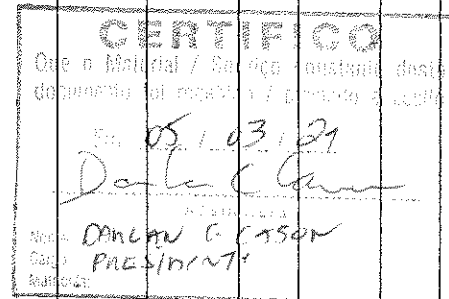 CERTIFICO
Que o Material / Serviço constante deste
documento foi recebido / prestado e aceito
Em 05 / 03 / 21
Assinatura
Nome
Cargo PRESIDENTE
Matrícula: